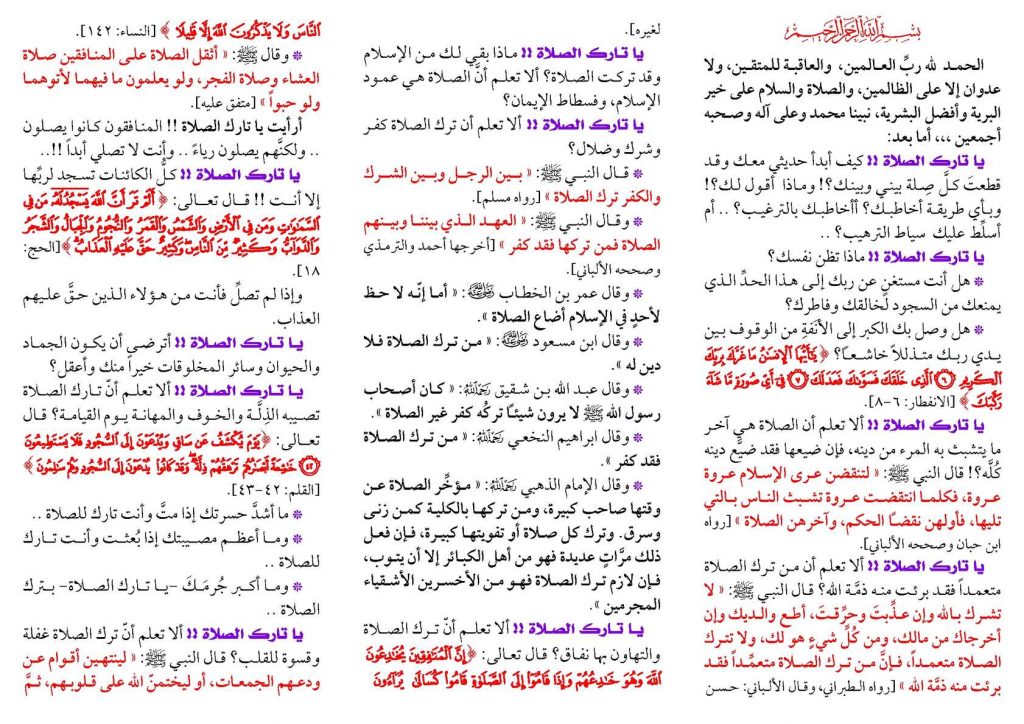 بسم الله الرحمن الرحيم
الحمد لله ربِّ العالمين، والعاقبة للمتقين، ولا
عدوان إلا على الظالمين، والصلاة والسلام على خير
البرية وأفضل البشرية، نبينا محمد وعلى آله وصحبه
أجمعين ،،، أما بعد:
يا تارك الصلاة !! كيف أبدأ حديثي معك وقد
قطعتَ كلَّ صِلة بيني وبينك؟! وماذا أقول لك؟!
وبأي طريقة أخاطبك؟ أأخاطبك بالترغيب؟ .. أم
أسلِّط عليك سياط الترهيب؟ ..
يا تارك الصلاة !! ماذا تظن نفسك؟
* هل أنت مستغنٍ عن ربك إلى هذا الحدِّ الذي
يمنعك من السجود لخالقك وفاطرك؟
* هل وصل بك الكبر إلى الأنَفةِ من الوقوف بين
يدي ربك متذللاً خاشعاً؟ ﴿ يَٰٓأَيُّهَا ٱلۡإِنسَٰنُ مَا غَرَّكَ بِرَبِّكَ
ٱلۡكَرِيمِ ٦ ٱلَّذِي خَلَقَكَ فَسَوَّىٰكَ فَعَدَلَكَ ٧ فِيٓ أَيِّ صُورَةٖ مَّا شَآءَ
رَكَّبَكَ ﴾ [الانفطار: ٦-٨].
يا تارك الصلاة !! ألا تعلم أن الصلاة هي آخر
ما يتشبث به المرء من دينه، فإن ضيعها فقد ضيَّع دينه
كُلَّه؟! قال النبي ﷺ: « لتنقضن عرى الإسلام عروة
عروة، فكلما انتقضت عروة تشبث الناس بالتي
تليها، فأولهن نقضًا الحكم، وآخرهن الصلاة » [رواه
ابن حبان وصححه الألباني].
يا تارك الصلاة !! ألا تعلم أن من ترك الصلاة
متعمداً فقد برئت منه ذمَّة الله؟ قال النبي ﷺ: « لا
تشرك بالله وإن عذِّبتَ وحرِّقتَ، أطع والديك وإن
أخرجاك من مالك، ومن كُلِّ شيءٍ هو لك، ولا تترك
الصلاة متعمداً، فإنَّ من ترك الصلاة متعمِّداً فقد
برئت منه ذمَّة الله » [رواه الطبراني، وقال الألباني: حسن
لغيره].
يا تارك الصلاة !! ماذا بقي لك من الإسلام
وقد تركت الصلاة؟ ألا تعلم أنَّ الصلاة هي عمود
الإسلام، وفسطاط الإيمان؟
يا تارك الصلاة !! ألا تعلم أن ترك الصلاة كفر
وشرك وضلال؟
* قال النبي ﷺ: « بين الرجل وبين الشرك
والكفر ترك الصلاة » [رواه مسلم].
* وقال النبي ﷺ: « العهد الذي بيننا وبينهم
الصلاة فمن تركها فقد كفر » [أخرجها أحمد والترمذي
وصححه الألباني].
* وقال عمر بن الخطاب رضي الله عنه: « أما إنّه لا حظ
لأحدٍ في الإسلام أضاع الصلاة ».
* وقال ابن مسعود رضي الله عنه: « من ترك الصلاة فلا
دين له ».
* وقال عبد الله بن شقيق رحمه الله: « كان أصحاب
رسول الله ﷺ لا يرون شيئًا تركُه كفر غير الصلاة ».
* وقال ابراهيم النخعي رحمه الله: « من ترك الصلاة
فقد كفر ».
* وقال الإمام الذهبي رحمه الله: « مؤخِّر الصلاة عن
وقتها صاحب كبيرة، ومن تركها بالكلية كمن زنى
وسرق. وترك كل صلاة أو تفويتها كبيرة، فإن فعل
ذلك مرَّاتٍ عديدة فهو من أهل الكبائر إلا أن يتوب،
فإن لازم ترك الصلاة فهو من الأخسرين الأشقياء
المجرمين ».
يا تارك الصلاة !! ألا تعلم أنّ ترك الصلاة
والتهاون بها نفاق؟ قال تعالى: ﴿ إِنَّ ٱلۡمُنَٰفِقِينَ يُخَٰدِعُونَ
ٱللَّهَ وَهُوَ خَٰدِعُهُمۡ وَإِذَا قَامُوٓاْ إِلَى ٱلصَّلَوٰةِ قَامُواْ كُسَالَىٰ يُرَآءُونَ
ٱلنَّاسَ وَلَا يَذۡكُرُونَ ٱللَّهَ إِلَّا قَلِيلٗا ﴾ [النساء: ١٤٢].
* وقال ﷺ: « أثقل الصلاة على المنافقين صلاة
العشاء وصلاة الفجر، ولو يعلمون ما فيهما لأتوهما
ولو حبواً » [متفق عليه].
أرأيت يا تارك الصلاة !! المنافقون كانوا يصلون
.. ولكنَّهم يصلون رياءً .. وأنت لا تصلي أبداً !!..
يا تارك الصلاة !! كلُّ الكائنات تسجد لربِّها
إلا أنت !! قال تعالى: ﴿ أَلَمۡ تَرَ أَنَّ ٱللَّهَ يَسۡجُدُ لَهُۥ مَن فِي
ٱلسَّمَٰوَٰتِ وَمَن فِي ٱلۡأَرۡضِ وَٱلشَّمۡسُ وَٱلۡقَمَرُ وَٱلنُّجُومُ وَٱلۡجِبَالُ وَٱلشَّجَرُ
وَٱلدَّوَآبُّ وَكَثِيرٞ مِّنَ ٱلنَّاسِۖ وَكَثِيرٌ حَقَّ عَلَيۡهِ ٱلۡعَذَابُ ﴾ [الحج:
١٨].
وإذا لم تصلِّ فأنت من هؤلاء الذين حقَّ عليهم
العذاب.
يا تارك الصلاة !! أترضى أن يكون الجماد
والحيوان وسائر المخلوقات خيراً منك وأعقل؟
يا تارك الصلاة !! ألا تعلم أنّ تارك الصلاة
تصيبه الذِلَّة والخوف والمهانة يوم القيامة؟ قال
تعالى: ﴿ يَوۡمَ يُكۡشَفُ عَن سَاقٖ وَيُدۡعَوۡنَ إِلَى ٱلسُّجُودِ فَلَا يَسۡتَطِيعُونَ
٤٢ خَٰشِعَةً أَبۡصَٰرُهُمۡ تَرۡهَقُهُمۡ ذِلَّةٞۖ وَقَدۡ كَانُواْ يُدۡعَوۡنَ إِلَى ٱلسُّجُودِ وَهُمۡ سَٰلِمُونَ ﴾
[القلم: ٤٢-٤٣].
* ما أشدَّ حسرتك إذا متَّ وأنت تارك للصلاة ..
* وما أعظم مصيبتك إذا بُعثت وأنت تارك
للصلاة ..
* وما أكبر جُرمَكَ –يا تارك الصلاة– بترك
الصلاة ..
يا تارك الصلاة !! ألا تعلم أنّ ترك الصلاة غفلة
وقسوة للقلب؟ قال النبي ﷺ: « لينتهين أقوام عن
ودعهم الجمعات، أو ليختمنّ الله على قلوبهم، ثمَّ